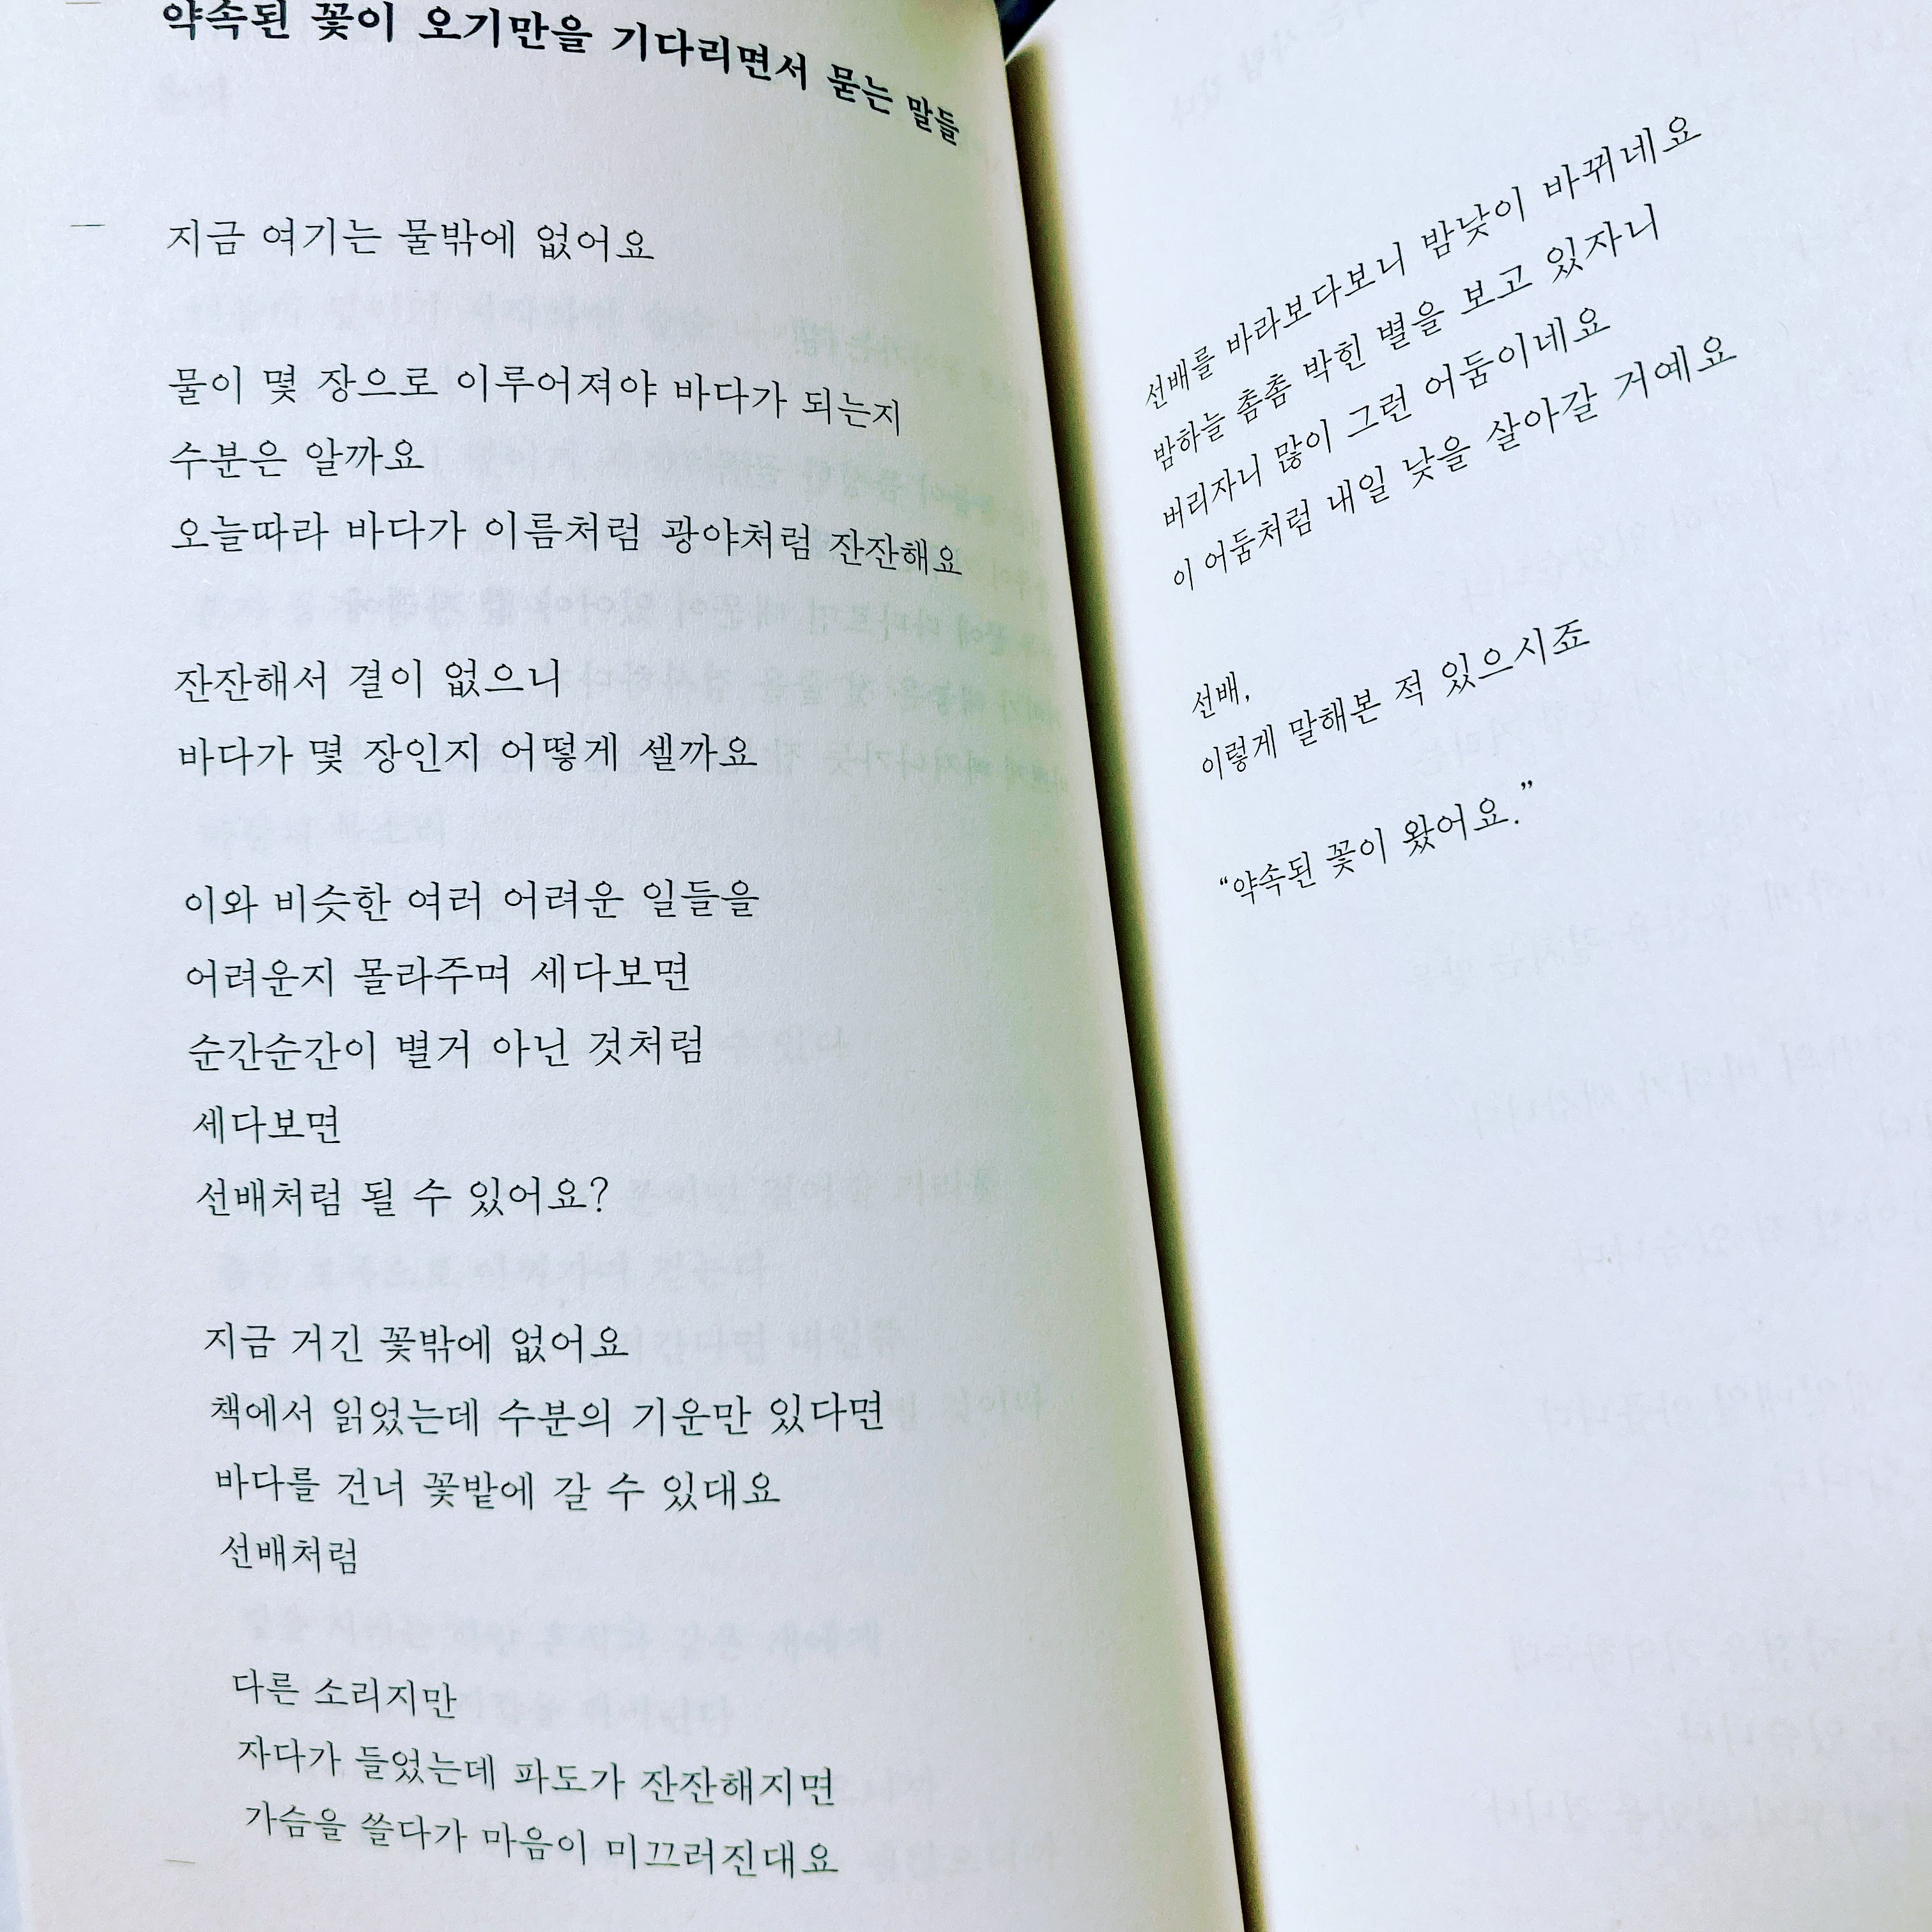 약속된 꽃이 오기만을 기다리면서 묻는 말들
지금 여기는 물밖에 없어요
물이 몇 장으로 이루어져야 바다가 되는지
수분은 알까요
오늘따라 바다가 이름처럼 광야처럼 잔잔해요
잔잔해서 결이 없으니
바다가 몇 장인지 어떻게 셀까요
이와 비슷한 여러 어려운 일들을
어려운지 몰라주며 세다보면
순간순간이 별거 아닌 것처럼
세다보면
선배처럼 될 수 있어요?
지금 거긴 꽃밖에 없어요
책에서 읽었는데 수분의 기운만 있다면
바다를 건너 꽃밭에 갈 수 있대요
선배처럼
다른 소리지만
자다가 들었는데 파도가 잔잔해지면
가슴을 쓸다가 마음이 미끄러진대요
선배를 바라보다보니 밤낮이 바뀌네요
밤하늘 촘촘 박힌 별을 보고 있자니
버리자니 많이 그런 어둠이네요
이 어둠처럼 내일 낮을 살아갈 거예요
선배,
이렇게 말해본 적 있으시죠
“약속된 꽃이 왔어요.”